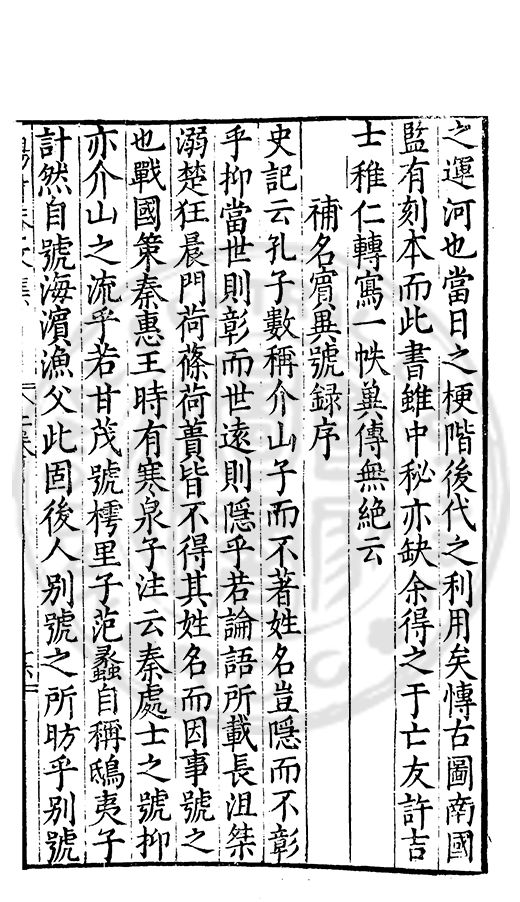 之運河也當日之梗階後代之利用矣慱古圖南國
監有刻本而此書雖中秘亦缺余得之于亡友許吉
士稚仁轉寫一帙兾傳無絶云
補名賔異號録序
史記云孔子數稱介山子而不著姓名豈隱而不彰
乎抑當世則彰而世遠則隱乎若論語所載長沮桀
溺楚狂晨門荷蓧荷蕢皆不得其姓名而因事號之
也戰國策秦惠王時有寒泉子注云秦處士之號抑
亦介山之流乎若甘茂號樗里子范蠡自稱鴟夷子
計然自號海濱漁父此固後人别號之所昉乎别號